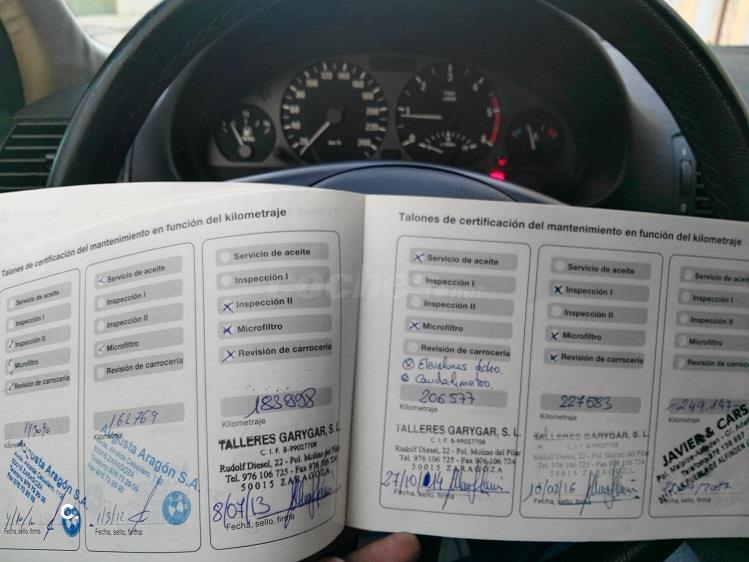 Talones de certificación del mantenimiento en función del kilometraje
Servicio de aceite
Inspección I
Inspección II
Microfiltro
Revisión de carrocería
Kilometraje
Augusta Aragón S.A.
Fecha, sello, firma
Servicio de aceite
Inspección I
Inspección II
Microfiltro
Revisión de carrocería
162769
Kilometraje
Augusta Aragón S.A.
1/3/12
Fecha, sello, firma
Servicio de aceite
Inspección I
Inspección II
Microfiltro
Revisión de carrocería
183998
Kilometraje
TALLERES GARYGAR, S. L.
C. I. F. B-99027708
Rudolf Diesel, 22 - Pol. Molino del Pilar
Tel. 976 106 725 - Fax 976 106 724
50015 ZARAGOZA
8/07/13
Fecha, sello, firma
Talones de certificación del mantenimiento en función del kilometraje
Servicio de aceite
Inspección I
Inspección II
Microfiltro
Revisión de carrocería
Elevalunas dcho.
Caudalimetro.
206577
Kilometraje
TALLERES GARYGAR, S. L.
C. I. F. B-99027708
Rudolf Diesel, 22 - Pol. Molino del Pilar
Tel. 976 106 725 - Fax 976 106 724
50015 ZARAGOZA
27/10/014
Fecha, sello, firma
Servicio de aceite
Inspección I
Inspección II
Microfiltro
Revisión de carrocería
227583
Kilometraje
TALLERES GARYGAR, S. L.
C. I. F. B-99027708
Rudolf Diesel, 22 - Pol. Molino del Pilar
Tel. 976 106 725 - Fax 976 106 724
50015 ZARAGOZA
10/02/16
Fecha, sello, firma
Servicio de aceite
Inspección I
Inspección II
Microfiltro
Revisión de carrocería
Kilometraje
JAVIER & CARS
Fecha, sello, firma